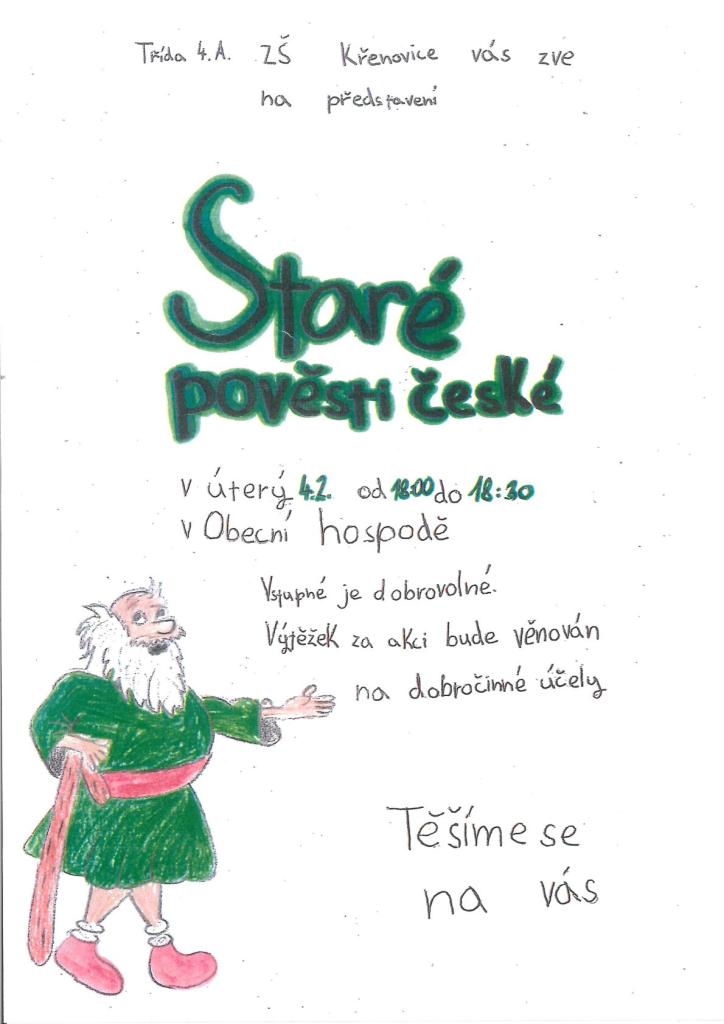 Třída 4.A. ZŠ Křenovice vás zve
na představení
Staré
pověsti české
v úterý 4.2. od 18:00 do 18:30
v Obecní hospodě
Vstupné je dobrovolné.
Výtěžek za akci bude věnován
na dobročinné účely
Těšíme se
na vás